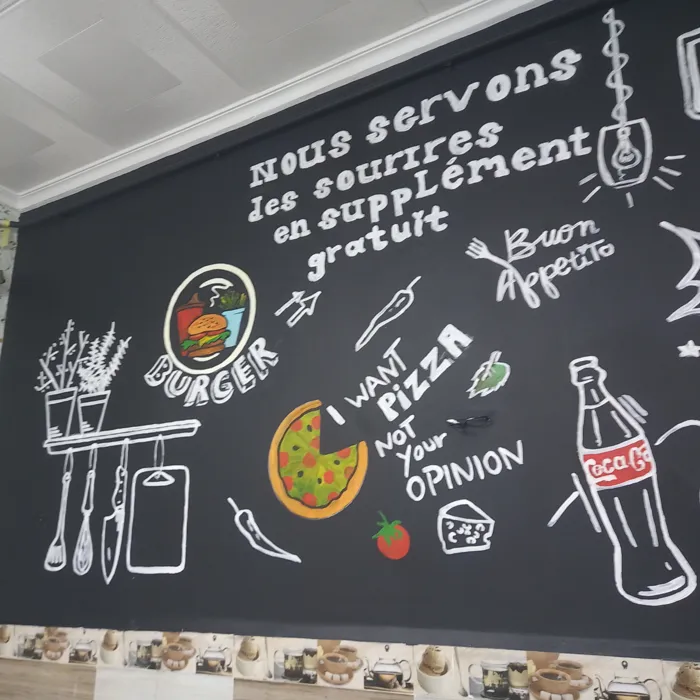 Nous servons
des sourires
en supplément
gratuit
Buon
Appetito
BURGER
I WANT
Pizza
NOT
Your
OPINION
Coca Co